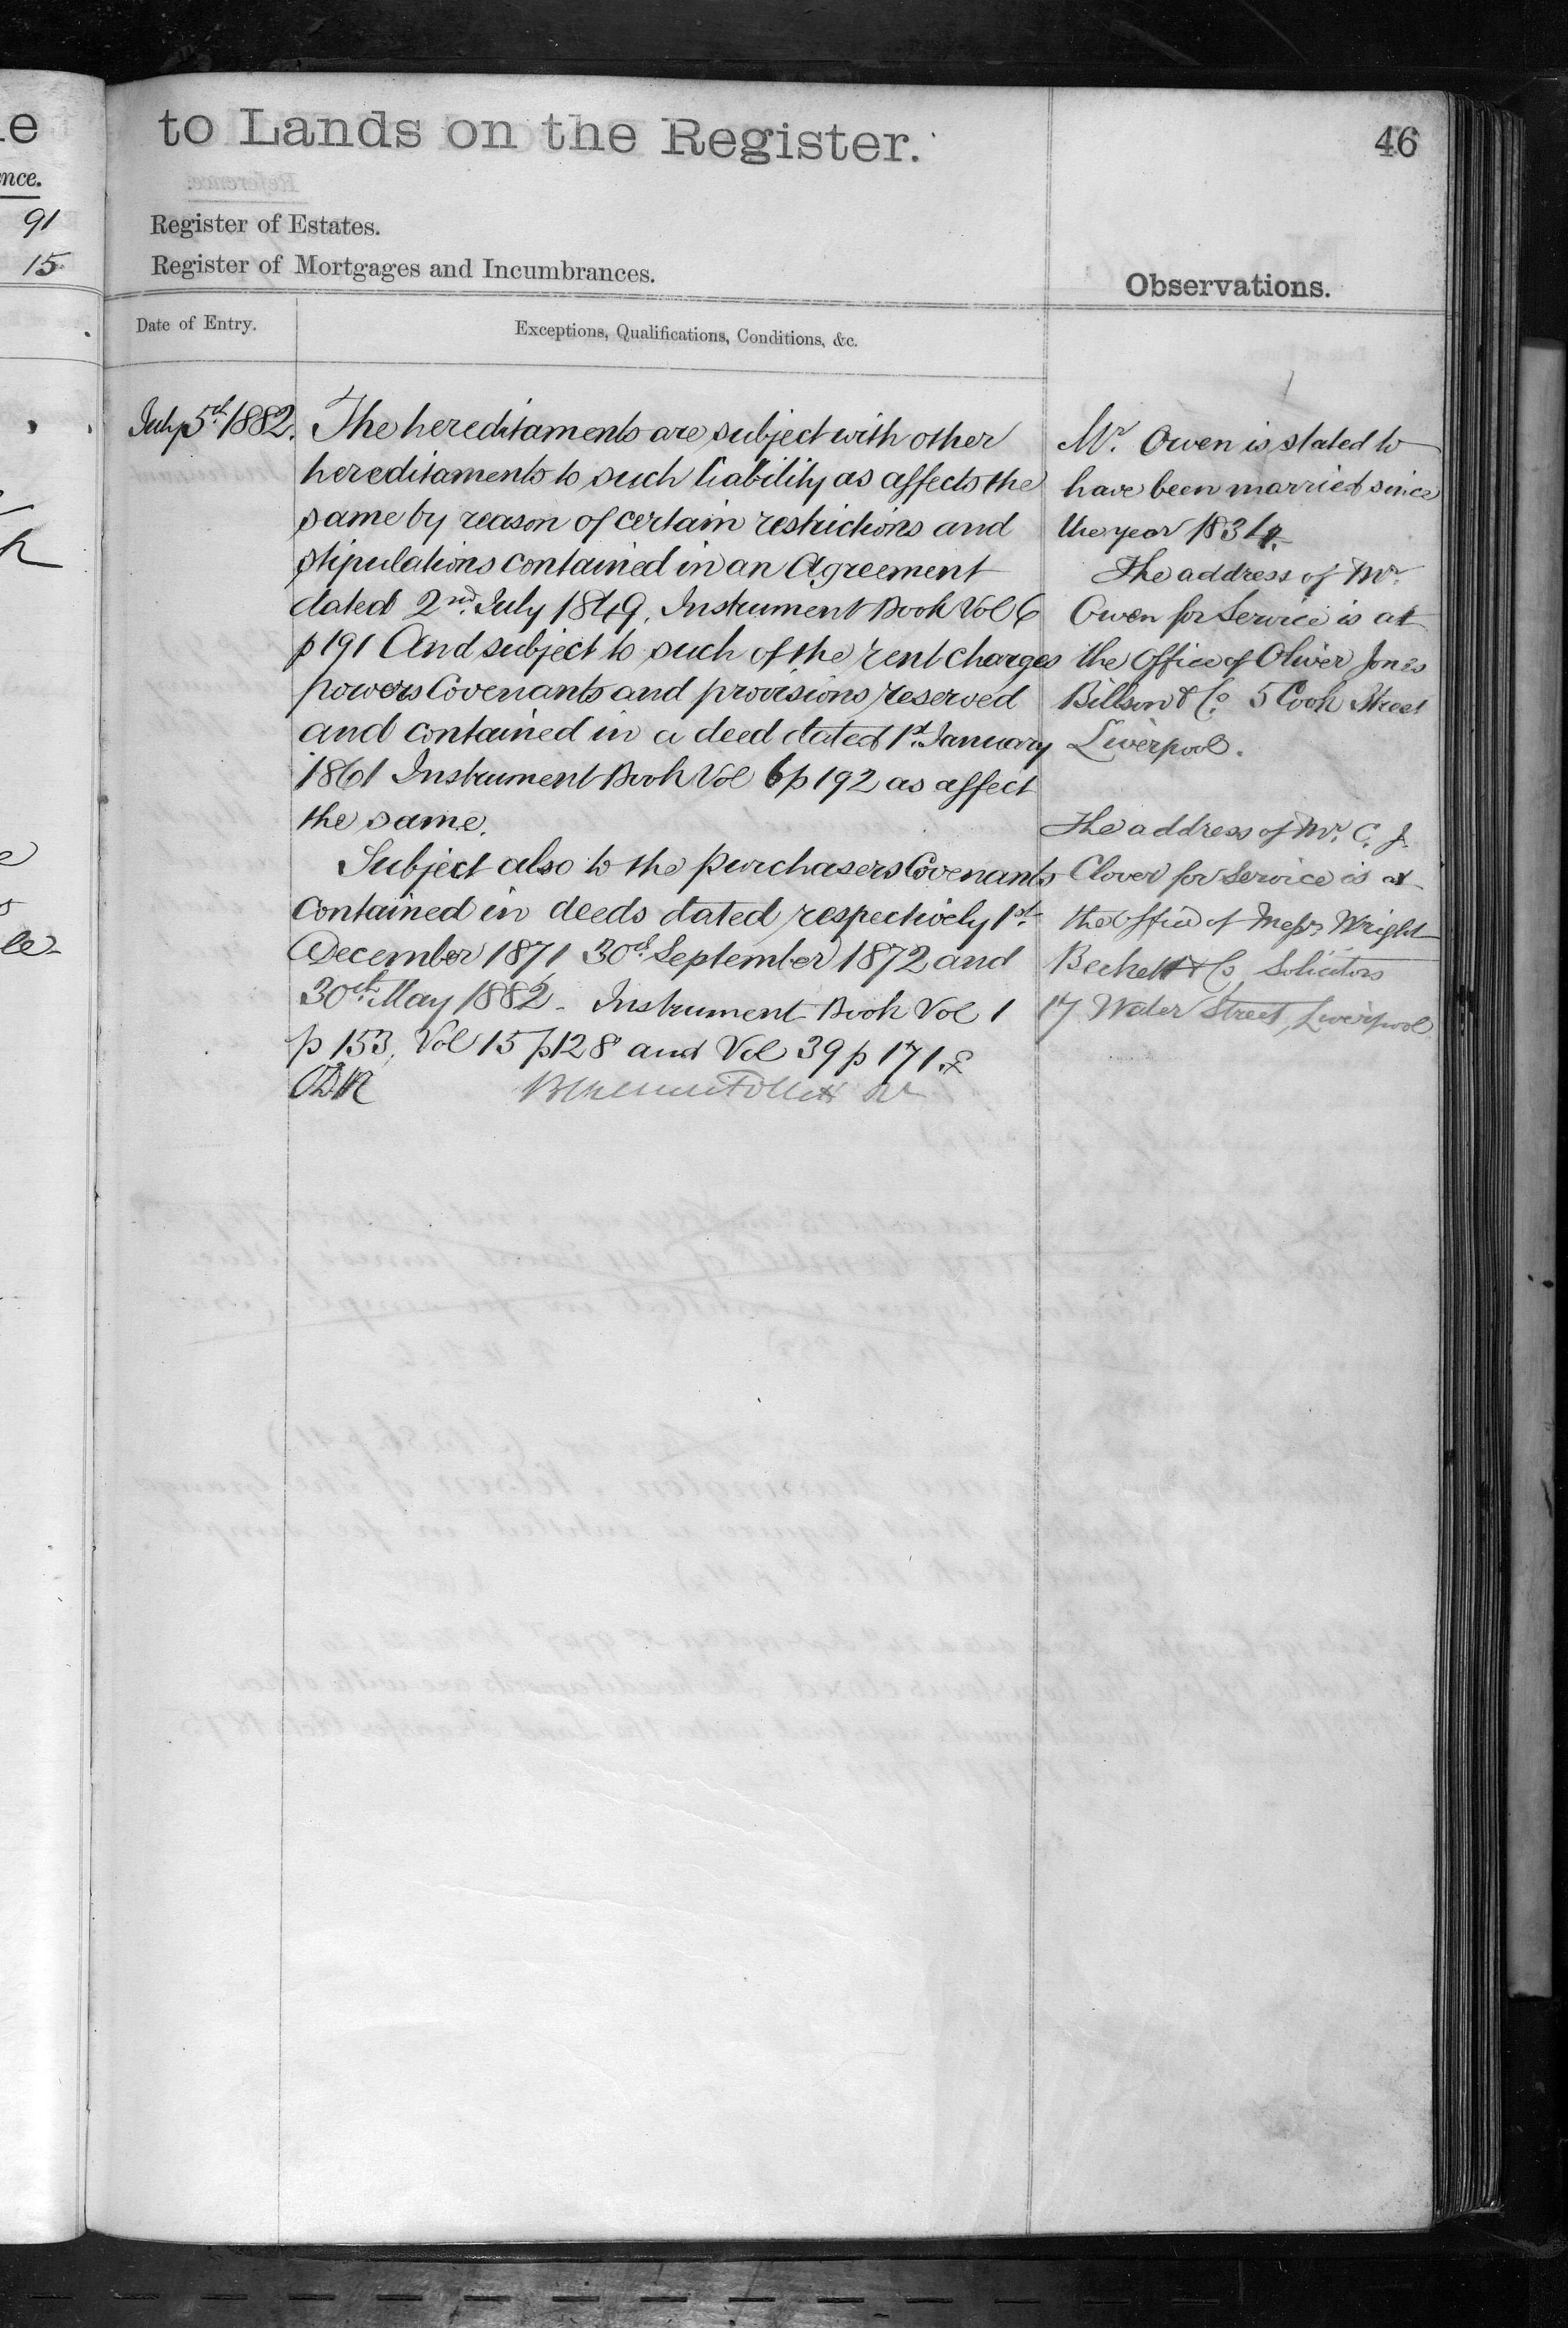 to Lands on the Register.
46
Register of Estates.
Register of Mortgages and Incumbrances.
Observations.
Date of Entry.
Exceptions, Qualifications, Conditions, &c.
nce.
91
15
July 5th 1882.
The hereditaments are subject with other
hereditaments to such liability as affects the
same by reason of certain restrictions and
stipulations contained in an Agreement
dated 2nd July 1849, Instrument Book Vol 6
p 191 And subject to such of the rent charges
powers Covenants and provisions reserved
and contained in a deed dated 1st January
1861 Instrument Book Vol 6 p 192 as affect
the same.
Subject also to the purchasers Covenants
contained in deeds dated respectively 1st
December 1871, 30th September 1872 and
30th May 1882 - Instrument Book Vol 1
p 153, Vol 15 p 128 and Vol 39 p 171.
Mr. Owen is stated to
have been married since
the year 1834.
The address of Mr.
Owen for Service is at
the Office of Oliver Jones
Billson & Co. 5 Cook Street
Liverpool.
The address of Mr. C. J.
Clover for Service is at
the office of Messrs Wright
Beckett & Co, Solicitors
17 Water Street, Liverpool